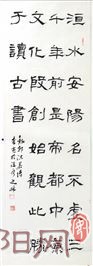 洹水安陽名不虛三
千年前是帝都中原
文化殷創始觀此勝
于讀古書